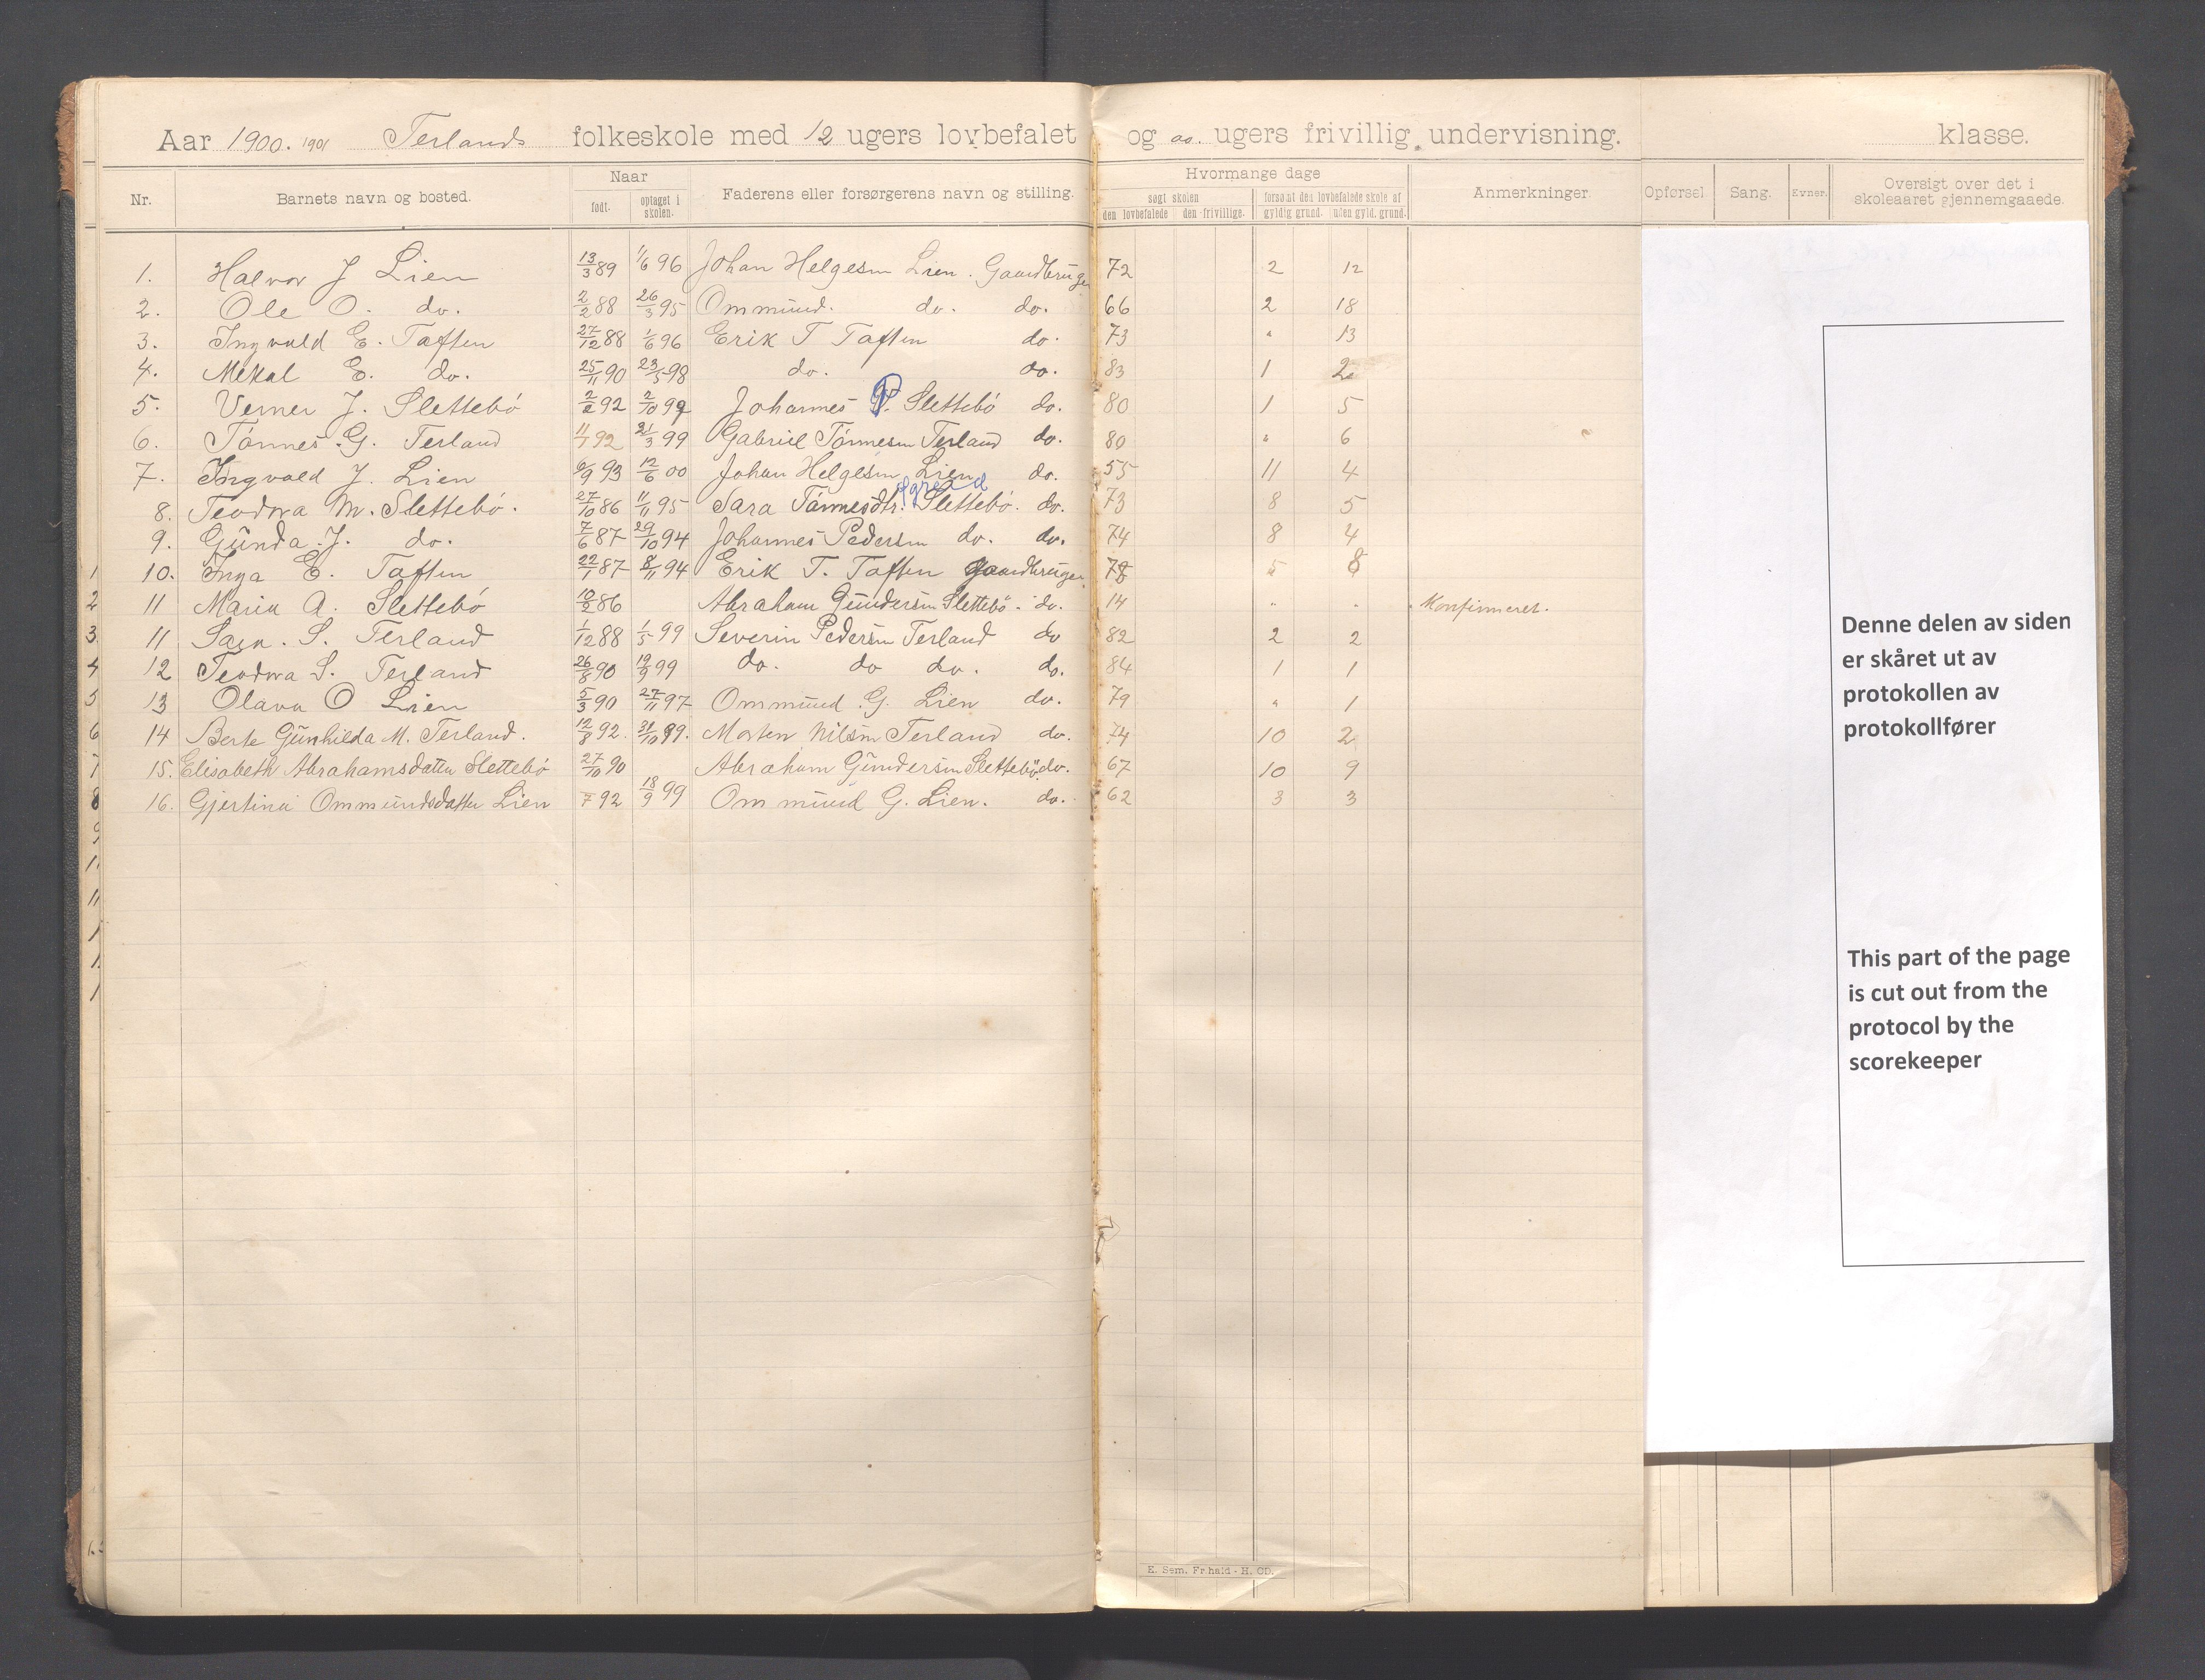 Aar 1900. 1901 Terlands folkeskole med 12 ugers lovbefalet og ugers frivillig undervisning. klasse.
Nr. Barnets navn og bosted. Naar født. optaget i skolen. Faderens eller forsørgerens navn og stilling. Hvormange dage søgt skolen den lovbefalede den frivillige. forsømt den lovbefalede skole af gyldig grund. uden gyld. grund. Anmerkninger. Opførsel Sang. Evner. Oversigt over det i skoleaaret gjennemgaaede.
1. Halvor J Lien 13/3 89 1/6 96 Johan Helgesen Lien. Gaardbruger 72 2 12
2. Ole O. do. 2/2 88 26/3 95 Ommund. do. do. 66 2 18
3. Ingvald E. Taften 27/12 88 1/6 96 Erik T Taften do. 73 " 13
4. Mekal E. do. 25/11 90 23/5 98 do. do. 83 1 2
5. Verner J. Slettebö 2/2 92 2/10 99 Johannes P. Slettebö do. 80 1 5
6. Tönnes G. Terland 11/7 92 21/3 99 Gabriel Tönnesen Terland do. 80 " 6
7. Ingvald J. Lien 6/9 93 12/6 00 Johan Helgesen Lien do. 55 11 4
8. Teodora M. Slettebö. 27/10 86 11/11 95 Sara Tönnesdtr. Slettebö. do. 73 8 5
9. Günda J. do. 7/6 87 29/10 94 Johannes Pedersen do. do. 74 8 4
10. Inga E. Taften 22/1 87 8/11 94 Erik T. Taften Gaardbruger. 78 5 8
11 Maria A. Slettebö 10/2 86 Abraham Gündersen Slettebö. do. 14 " " Konfirmeret.
11 S. Terland 1/12 88 1/5 99 Severin Pedersen Terland do 82 2 2
12 Teodora S. Terland 26/8 90 19/9 99 do. do do. do. 84 1 1
13 Olava O Lien 5/3 90 27/11 97 Ommund G. Lien do. 79 " 1
14 Berte Günhilda M. Terland. 12/8 92. 31/10 99. Morten Nilsen Terland do. 74 10 2
15. Elisabeth Abrahamsdatter Slettebö 27/10 90 Abraham Gündersen Slettebö do. 67 10 9
16. Gjertina Ommundsdatter Lien 7 92 18/9 99 Ommund G. Lien. do. 62 3 3
1
2
3
4
5
6
7
8
9
Denne delen av siden
er skåret ut av
protokollen av
protokollfører
This part of the page
is cut out from the
protocol by the
scorekeeper
E. Sem. Fr.hald - H. OD.